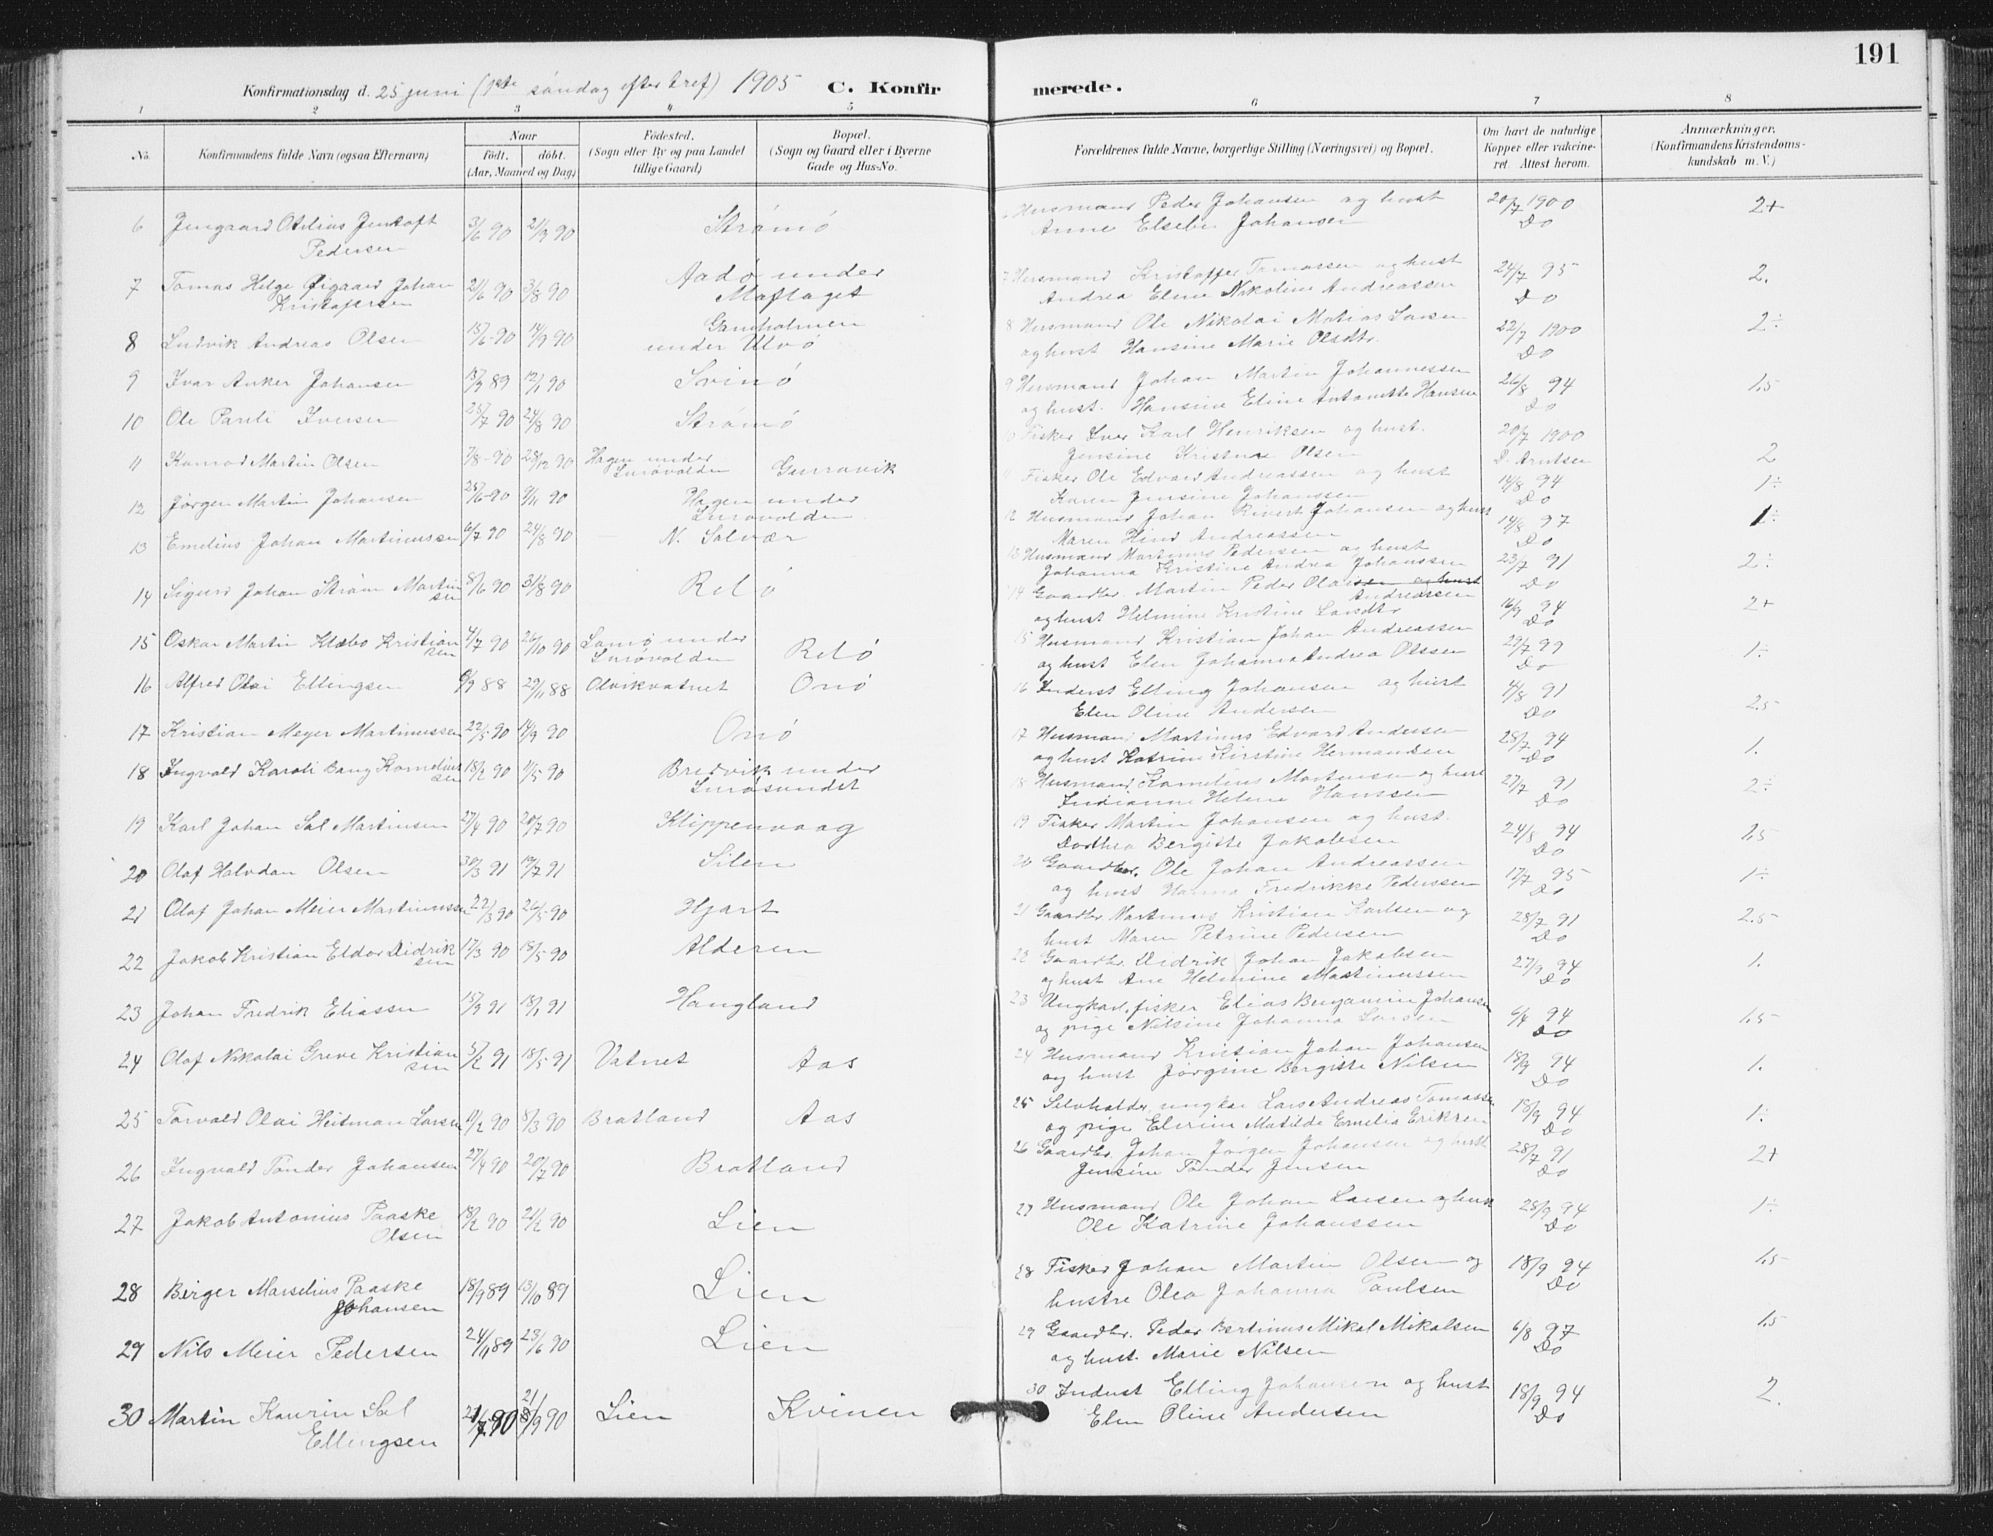 191
Konfirmationsdag d. 25 juni (1ste søndag efter tref) 1905 C. Konfirmerede.
1 2 3 4 5 6 7 8
No. Konfirmandens fulde Navn (ogsaa Efternavn) Naar født, døbt. (Aar, Maaned og Dag) Fødested. (Sogn eller By og paa Landet tillige Gaard) Bopæl. (Sogn og Gaard eller i Byerne Gade og Hus-No. Forældrenes fulde Navne, borgerlige Stilling (Næringsvei) og Bopæl. Om havt de naturlige Kopper eller vakcineret. Attest herom. Anmærkninger. (Konfirmandens Kristendomskundskab m. V.)
6 Jentoft Pedersen 3/6 90 21/9 90 Strømø Husmand Peder Johansen og hust 20/7 1900 2+
Anne Elseber Johansen Do
7 Tomas Helge Øigaard Johan Kristofersen 21/6 90 3/8 90 Aadø under Husmand Kristoffer Tomassen og hust 24/7 95 2.
Andrea Eline Nikoline Andreassen Do
8 Ludvik Andreas Olsen 15/6 90 14/9 90 Gamholmen under Ulvø 8 Husmand Ole Nikolai Matias Larsen 22/7 1900 2÷
og hust Hansine Marie Olsdtr. Do
9 Ivar Anker Johansen 15/9 89 12/1 90 Svinø 9 Husmand Johan Martin Johannessen 26/8 94 1,5
og hust. Hansine Eline Antonette Hansen Do
10 Ole Pauli Iversen 25/7 90 24/8 90 Strømø Fisker Iver Karl Henriksen og hust. 20/7 1900 2
Jensine Kristine Olsen D. Arntsen
11 Konrad Martin Olsen 7/8 90 28/12 90 Hagen under Lurøvolden Gurravik Fisker Ole Edvard Andreassen og hust 14/8 94 1÷
Karen Jensine Johanssen Do
12 Jørgen Martin Johansen 25/6 90 9/11 90 Hagen under Lurøvolden 12 Husmand Johan Rivert Johansen og hust 14/8 97 1÷
Maren Andreassen Do
13 Emelius Johan Martinussen 6/7 90 24/8 90 N. Solvær 13 Husmand Martinus Pedersen og hust 23/7 91 2÷
Johanna Kristine Andrea Johanssen Do
14 Sigurd Johan Strøm Martinsen 8/6 90 31/8 90 Relø 14 Gaardbr. Martin Peder Olaissen og hust Andreassen 16/9 94 2+
og hust Helmine Kristine Larsdtr Do
15 Oskar Martin Klæbo Kristiansen 4/7 90 26/10 90 under Lurøvolden Relø 15 Husmand Kristian Johan Andreassen 29/7 99 1÷
og hust Elen Johanna Andrea Olssen Do
16 Alfred Olai Ellingsen 9/9 88 29/11 88 Olvikvatnet Onø 16 Inderst Elling Johansen og hust 4/8 91 2.5
Elen Oline Andersen Do
17 Kristian Meyer Martinussen 22/5 90 14/9 90 Onø 17 Husman. Martinus Edvard Andersen 28/7 94 1.
og hust Katrine Kirstine Hermandsen Do
18 Ingvald Karoli Bang Korneliussen 18/2 90 11/5 90 Bredvik under Lurøsundet 18 Husmand Kornelius Mortensen og hust 27/7 91 2÷
Indianne Helene Hanssen Do
19 Karl Johan Sal Martinsen 27/4 90 20/7 90 Klippenvaag 19 Fisker Martin Johansen og hust. 24/8 94 1,5
Dorthea Bergitte Jakobsen Do
20 Olaf Halvdan Olsen 30/3 91 19/7 91 Silen 20 Gaardbr. Ole Johan Andreassen 17/7 95 1÷
og hust Hanna Fredrikke Pederssen Do
21 Olaf Johan Meier Martinussen 22/3 90 26/5 90 Hjart 21 Gaardbr Martinus Kristian Karlsen og 28/7 91 2.5
hust Maren Petrine Pedersen Do
22 Jakob Kristian Eldor Didriksen 17/3 90 18/5 90 Alderen 22 Gaardbr. Didrik Johan Jakobsen 27/9 94 1.
og hust Ane Helmine Martinussen Do
23 Johan Fredrik Eliassen 15/9 91 18/1 91 Haugland 23 Ungkarl, fisker Elias Benjamin Johansen 6/4 94 1,5
og pige Nilsine Johanna Larsen Do
24 Olaf Nikolai Greve Kristiansen 5/2 91 18/5 91 Vatnet Aas 24 Husmand Kristian Johan Johansen 18/9 94 1.
og hust Jørgine Bergitte Nilsen Do
25 Torvald Olai Heitman Larsen 11/2 90 8/3 90 Bratland Aas 25 Selvholder, ungkar Lars Andreas Tomassen 18/9 94 1÷
og pige Elerine Matilde Emelia Eriksen Do
26 Ingvald Tønder Johansen 27/4 90 20/7 90 Bratland 26 Gaardbr. Johan Jørgen Johansen og hust 28/7 91 2+
Jensine Tønder Jensen Do
27 Jakob Antonius Paaske Olsen 18/2 90 21/2 90 Lien 27 Husmand Ole Johan Larsen og hust 28/9 94 1÷
Ole Katrine Johanssen Do
28 Birger Marselius Paaske Johansen 18/9 89 13/10 89 Lien 28 Fisker Johan Martin Olsen og 18/9 94 1,5
hustre Olea Johanna Paulsen Do
29 Nils Meier Pedersen 24/11 89 23/6 90 Lien 29 Gaardbr. Peder Bertinus Mikal Mikalsen 6/8 97 1,5
og hust. Marie Nilsen Do
30 Martin Kaurin Sal Ellingsen 21/7 90 21/9 90 Lien Kvinen 30 Indust Elling Johansen og hust 18/9 94 2.
Elen Oline Andersen Do